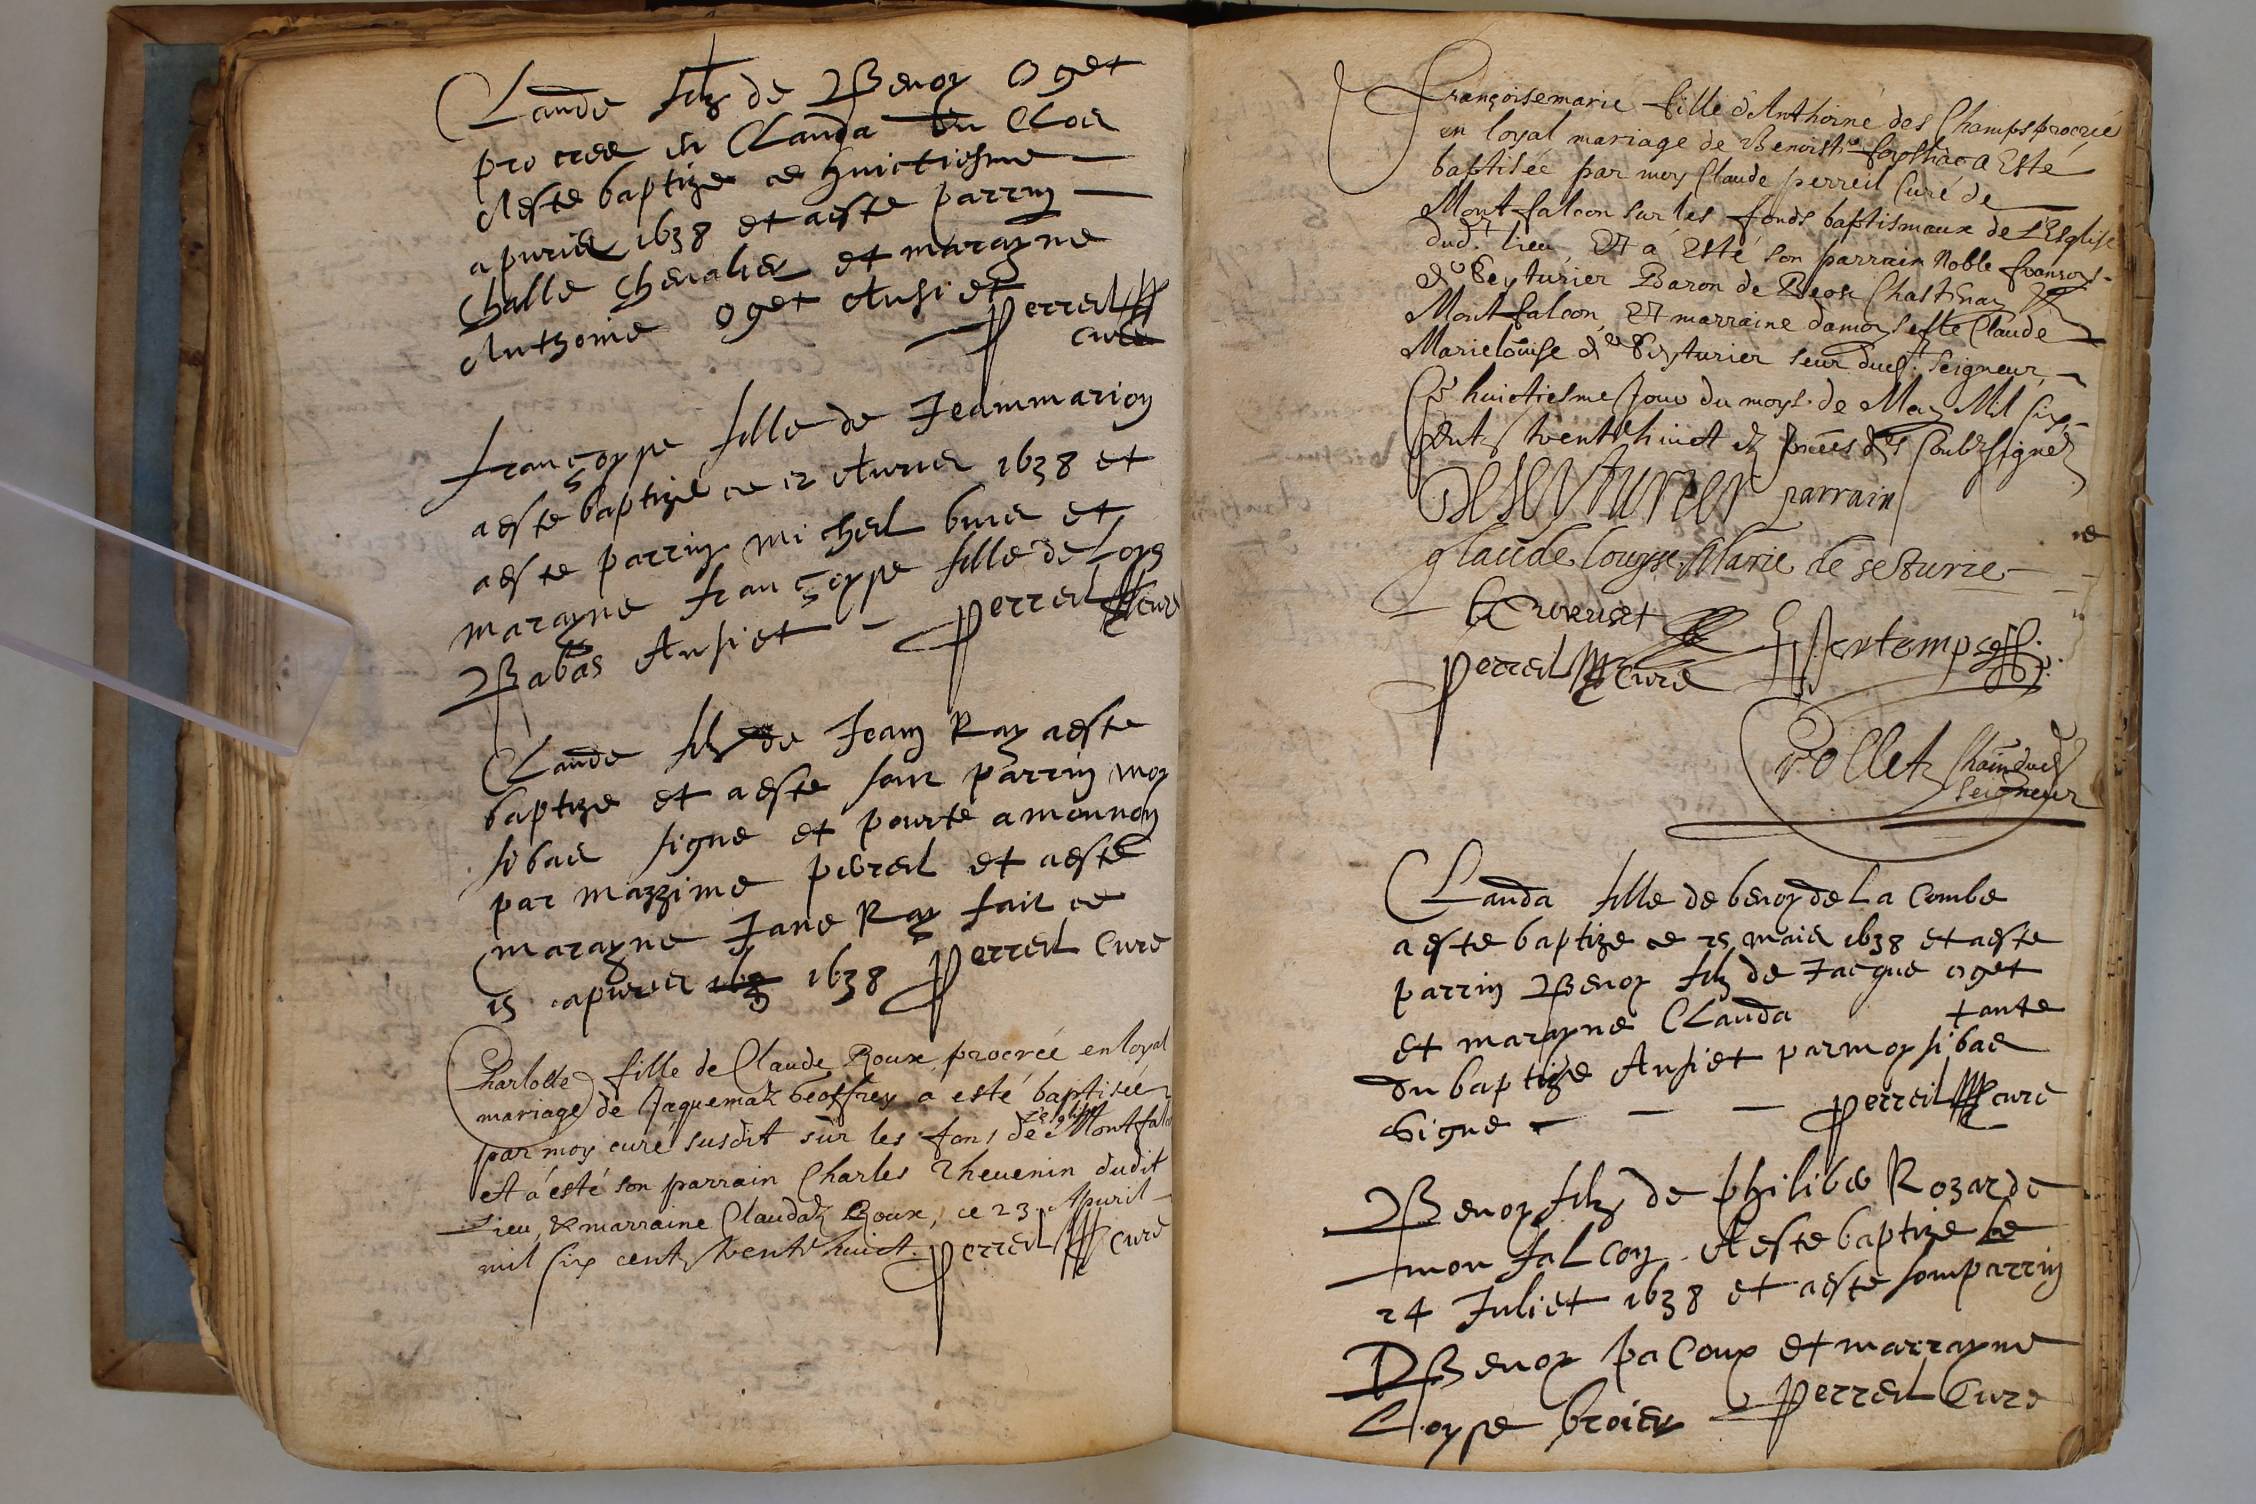 Claude filz de Benoy Oget
procree en Clauda du Clos
A este baptize ce huictiesme
apuril 1638 et a este parrin
Challe Chevalier et marayne
Anthoine Oget Ansi et
Perreil
cure
Françoyse fille de Jeanmarion
a este baptizé ce 12 Avuriel 1638 et
a este parrin Michel et
marayne Françoyse fille de Loys
Babas Ansi et Perreil cure
Claude filz de Jean Ray a este
baptize et a este sont parrin moy
sibas signe et pourte a mon non
par mazzime pereil et a este
marayne Jane Ray fait ce
15 apuriel 1638 Perreil Cure
Charlotte fille de Claude Roux, procréé en loyal
mariage de Jaquematz Geoffrey a esté baptisée
par moy curé susdit sur les fons de l'eglise Montfal
et a esté son parrain Charles Thevenin dudit
Lieu, & marraine Claudaz Roux, ce 23. Apuril
mil six centz trente huict. Perreil cure
Françoisemarie fille d'Anthoine des Champs procréé
en loyal mariage de Benoiste a Esté
baptisée par moy Claude perreil Curé de
Montfalcon sur les fonds baptismaux de L'Esglise
dud.t lieu, Et a Esté son parrain Noble fransoys
de Seyturier Baron de Chastenay
Montfalcon, Et marraine damoyselle Claude
Marielouise de Seyturier seur dud.t Seigneur,
Ce huictiesme Jour du moys de May Mil six
centz trente huict ez des soubzsignez
De Seyturier parrain
glaude louyse Marie de seturie
Perreil cure
Bertemps
Rollet
Seigneur
Clauda fille de benoy de La Combe
a este baptize ce 25 mais 1638 et a este
parrin Benoy filz de Jacque Oget
et marayne Clauda tante
du baptize Ansi et par moy sibas
signe Perreil cure
Benoy filz de philibe Rozar de
mon falcon A este baptize le
24 Juliet 1638 et a este sonparrin
Benoy pacoux et marrayne
Loyse broier Perreil Cure